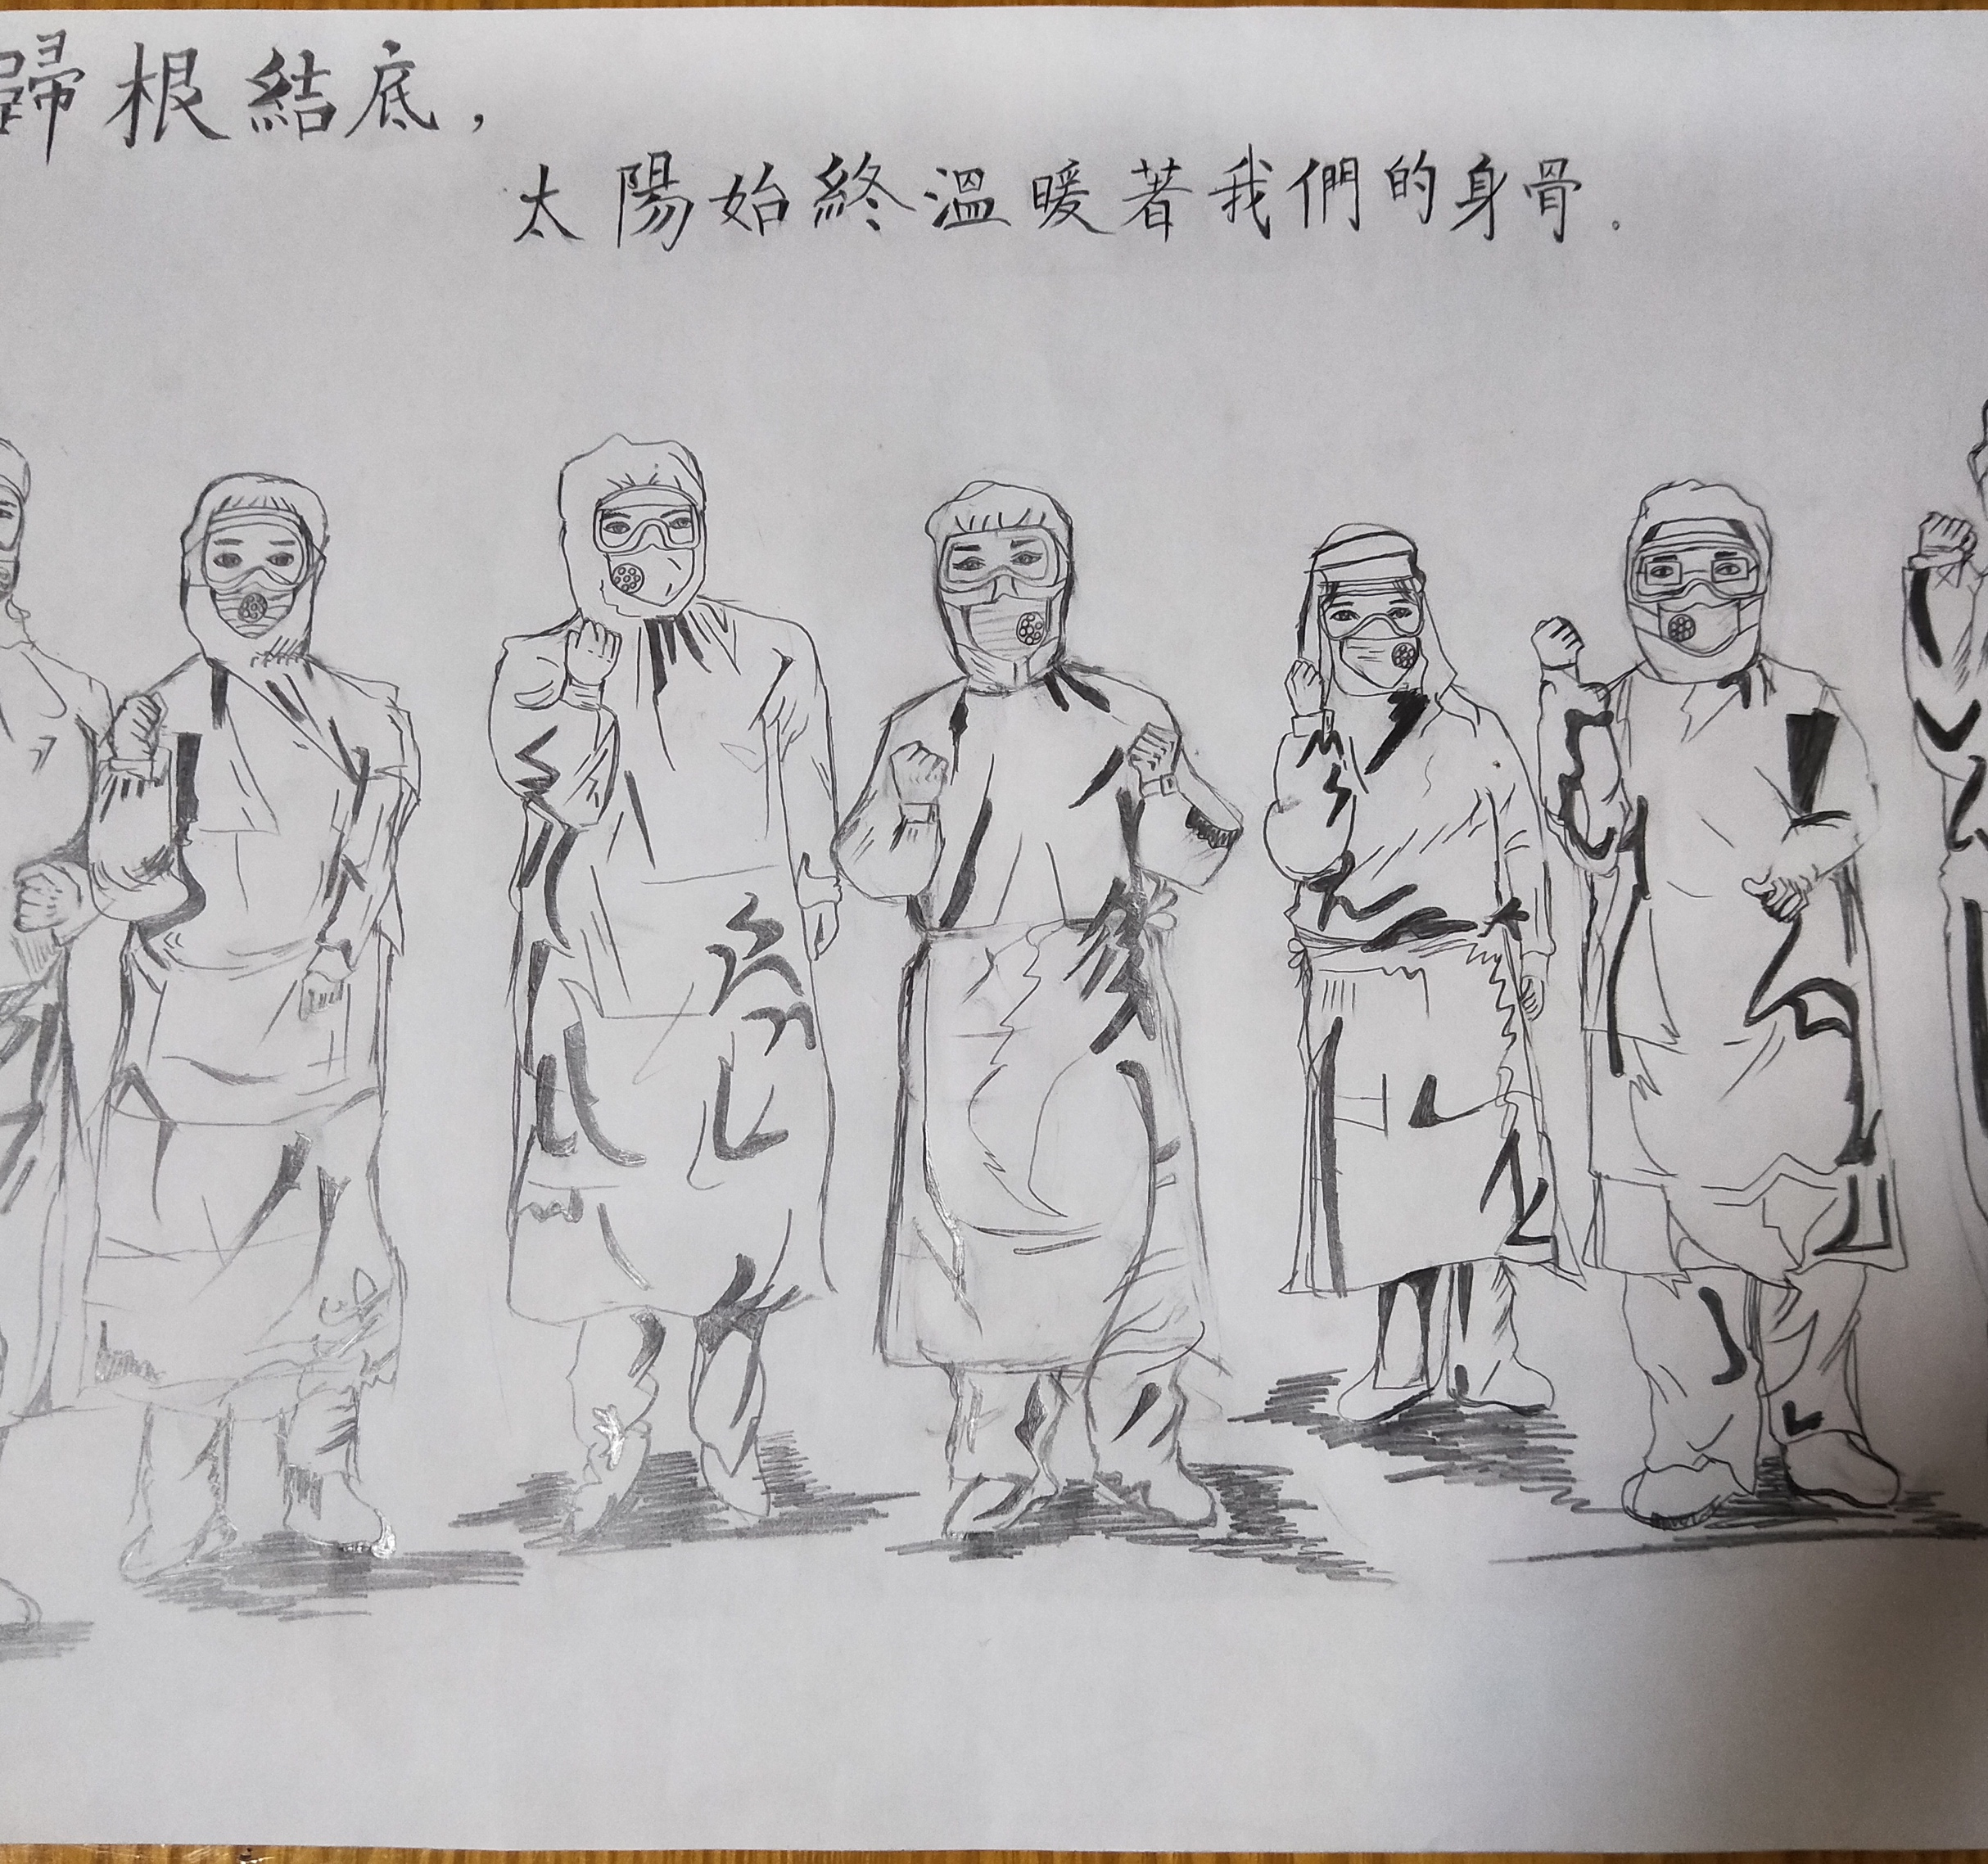 歸根結底，
太陽始終溫暖著我們的身骨。